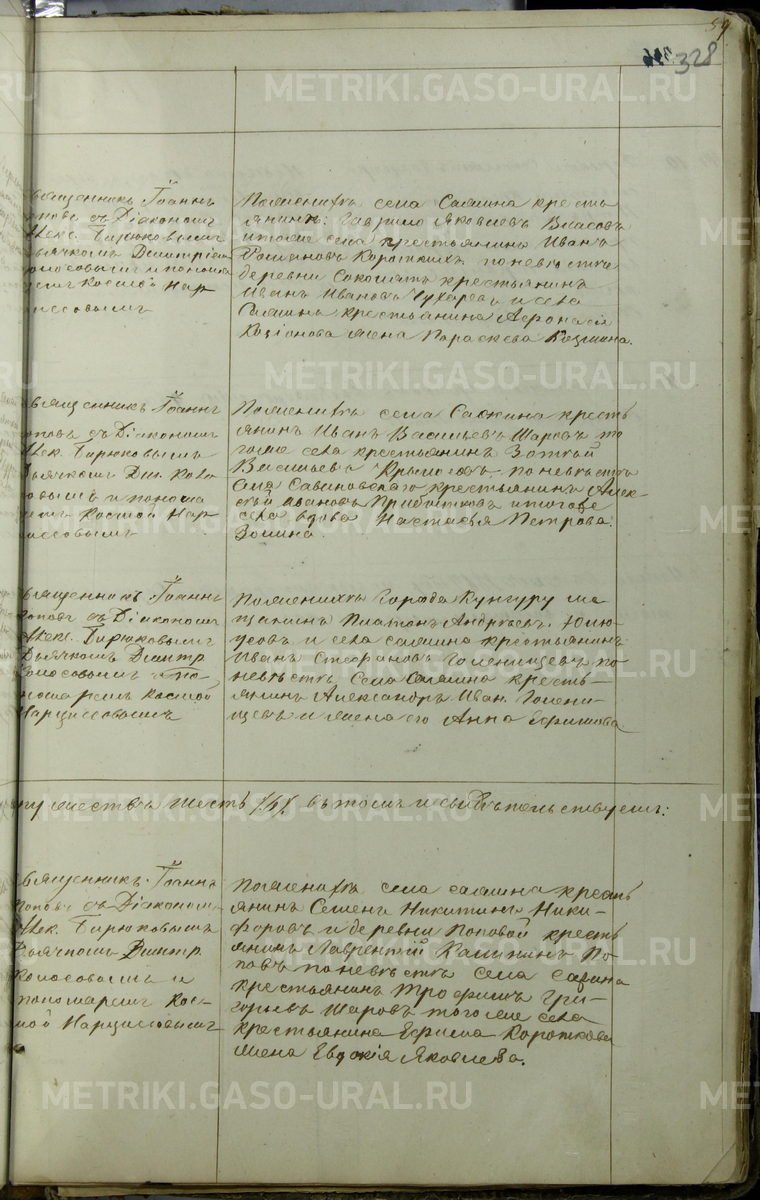 59
328
METRIKI.GASO-URAL.RU
Священникъ Іоаннъ
Поповъ съ Діакономъ
Алек. Бирюковымъ
Дьячкомъ Димитріемъ
Колосовымъ и понома
ремъ Космою Нар
циссовымъ
По женихѣ села Сажина кресть
янинъ: Гаврило Яковлевъ Власовъ
и тогоже села крестьянинъ Иванъ
Романовъ Короткихъ по невѣстѣ
деревни Соколятъ крестьянинъ
Иванъ Ивановъ Чухаревъ и села
Сажина крестьянина Афонасія
жена Параскева Козмина.
METRIKI.GASO-URAL.RU
Священникъ Іоаннъ
Поповъ съ Діакономъ
Алек. Бирюковымъ
Дьячкомъ Дим. Коло
совымъ и понома
ремъ Космой Нар
циссовымъ
По женихѣ села Сажина кресть
янинъ Иванъ Васильевъ Шаровъ то
гоже села крестьянинъ Зотей
Васильевъ по невѣстѣ
села Савиновскаго крестьянинъ Алек-
сѣй Ивановъ и тогоже
села вдова Настасья Петрова
Зомина.
METRIKI.GASO-URAL.RU
Священникъ Іоаннъ
Поповъ съ Діакономъ
Алек. Бирюковымъ
Дьячкомъ Димитр
Колосовымъ и по
номаремъ Космой
Нарциссовымъ
По женихѣ Города Кунгуру мѣ
щанинъ Платонъ Андреевъ
и села Сажина крестьянинъ
Иванъ Стефановъ Голенищевъ по
невѣстѣ Села Сажина кресть-
янинъ Александръ Иван. Голени-
щевъ и жена его Анна Ефимова
METRIKI.GASO-URAL.RU
супружествъ шесть /6/. въ томъ и свидѣтельствуемъ:
METRIKI.GASO-URAL.RU
Священникъ Іоаннъ
Поповъ съ Діакономъ
Алек. Бирюковымъ
Дьячкомъ Димитр
Колосовымъ и
пономаремъ Кос-
мой Нарциссовымъ
По женихѣ села Сажина кресть
янинъ Семенъ Никитинъ Ники-
форовъ и деревни Поповой кресть
янинъ Лаврентій Калининъ По
повъ по невѣстѣ села Сажина
крестьянинъ Трофимъ Гри-
горьевъ Шаровъ тогоже села
крестьянина Ефима Короткова
жена Евдокія Яковлева.
METRIKI.GASO-URAL.RU